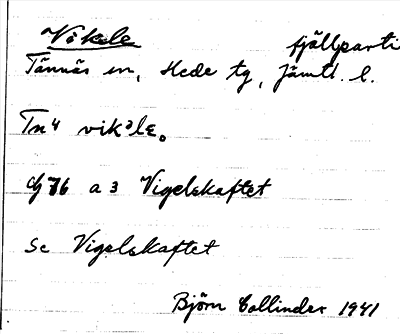 Vikele fjällparti
Tännäs sn, Hede tg, Jämtl. l.
Tn4 vikəle.
76 a 3 Vigelskaftet
Se Vigelskaftet
Björn Collinder 1941